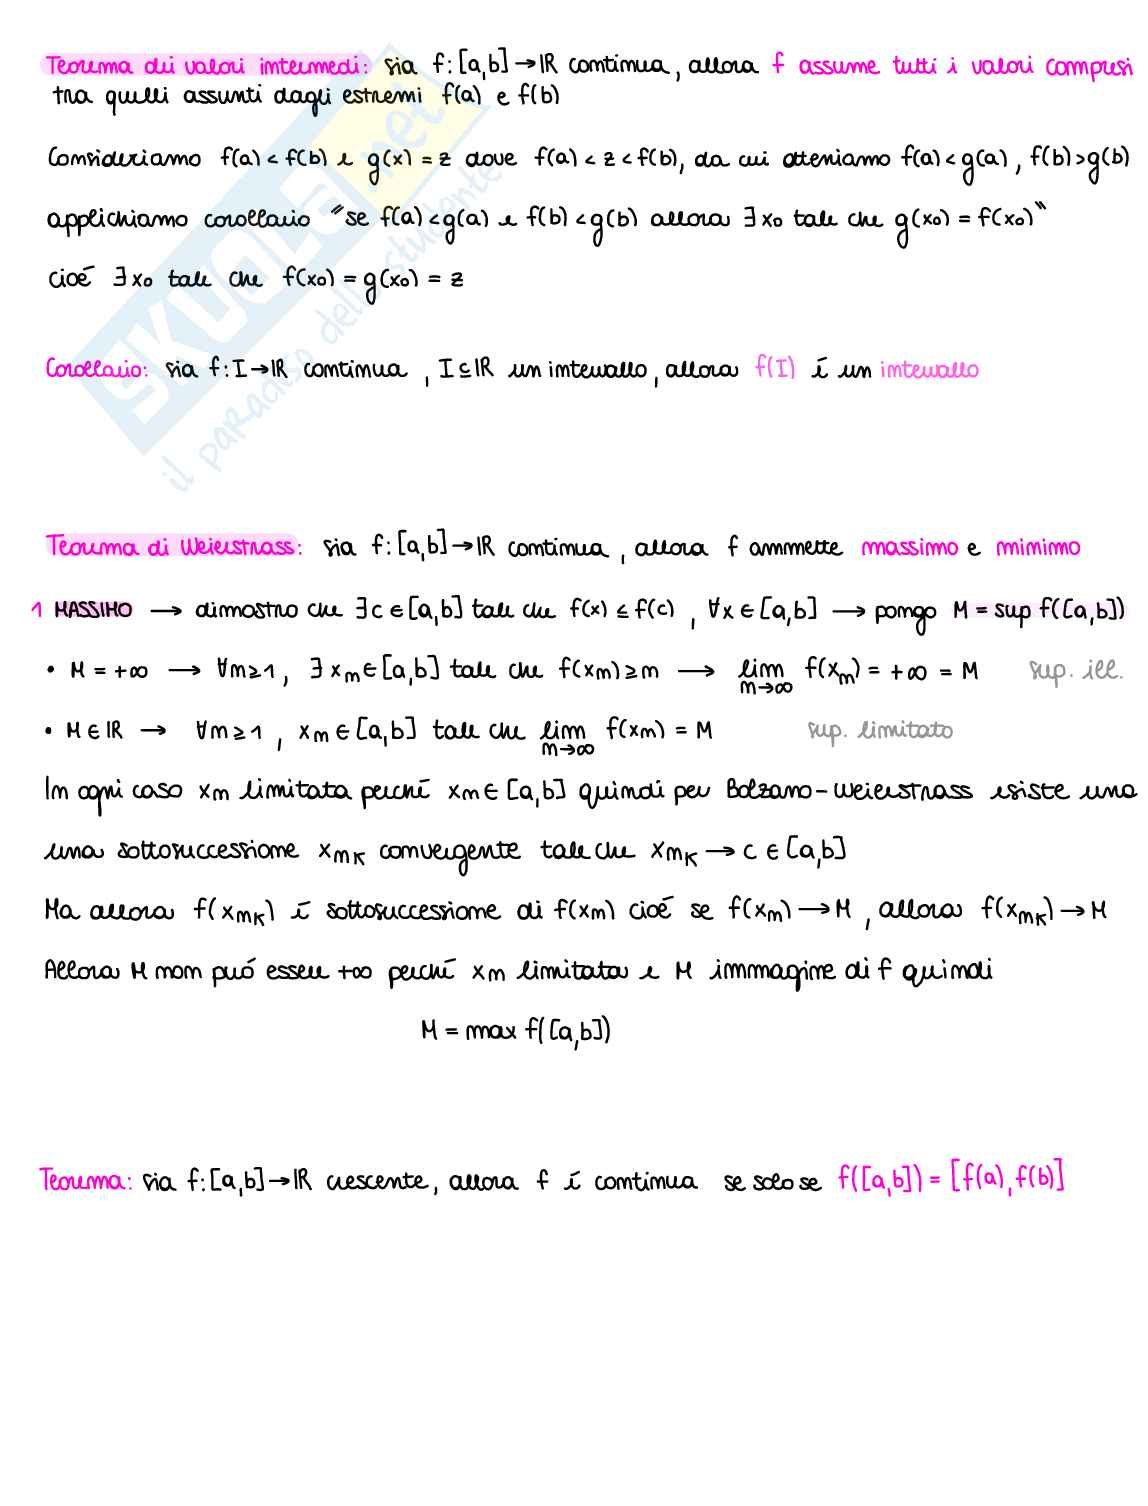 Teorema dei valori intermedi: sia f: [a,b] → ℝ continua, allora f assume tutti i valori compresi
tra quelli assunti dagli estremi f(a) e f(b)
Consideriamo f(a) < f(b) e g(x) = z dove f(a) < z < f(b), da cui otteniamo f(a) < g(a), f(b) > g(b)
applichiamo corollario "se f(a) < g(a) e f(b) < g(b) allora ∃ x₀ tale che g(x₀) = f(x₀)"
cioé ∃ x₀ tale che f(x₀) = g(x₀) = z
Corollario: sia f: I → ℝ continua, I ⊆ ℝ un intervallo, allora f(I) é un intervallo
Teorema di Weierstrass: sia f: [a,b] → ℝ continua, allora f ammette massimo e minimo
1 MASSIMO → dimostro che ∃ c ∈ [a,b] tale che f(x) ≤ f(c), ∀x ∈ [a,b] → pongo M = sup f([a,b])
• M = +∞ → ∀n ≥ 1, ∃ xₙ ∈ [a,b] tale che f(xₙ) ≥ n → lim n→∞ f(xₙ) = +∞ = M sup. ill.
• M ∈ ℝ → ∀n ≥ 1, xₙ ∈ [a,b] tale che lim n→∞ f(xₙ) = M sup. limitato
In ogni caso xₙ limitata perché xₙ ∈ [a,b] quindi per Bolzano-Weierstrass esiste una
una sottosuccessione xₙₖ convergente tale che xₙₖ → c ∈ [a,b]
Ma allora f(xₙₖ) é sottosuccessione di f(xₙ) cioé se f(xₙ) → M, allora f(xₙₖ) → M
Allora M non puó essere +∞ perché xₙ limitata e M immagine di f quindi
M = max f([a,b])
Teorema: sia f: [a,b] → ℝ crescente, allora f é continua se solo se f([a,b]) = [f(a), f(b)]
SKUOLA.net
il paradiso dello studente